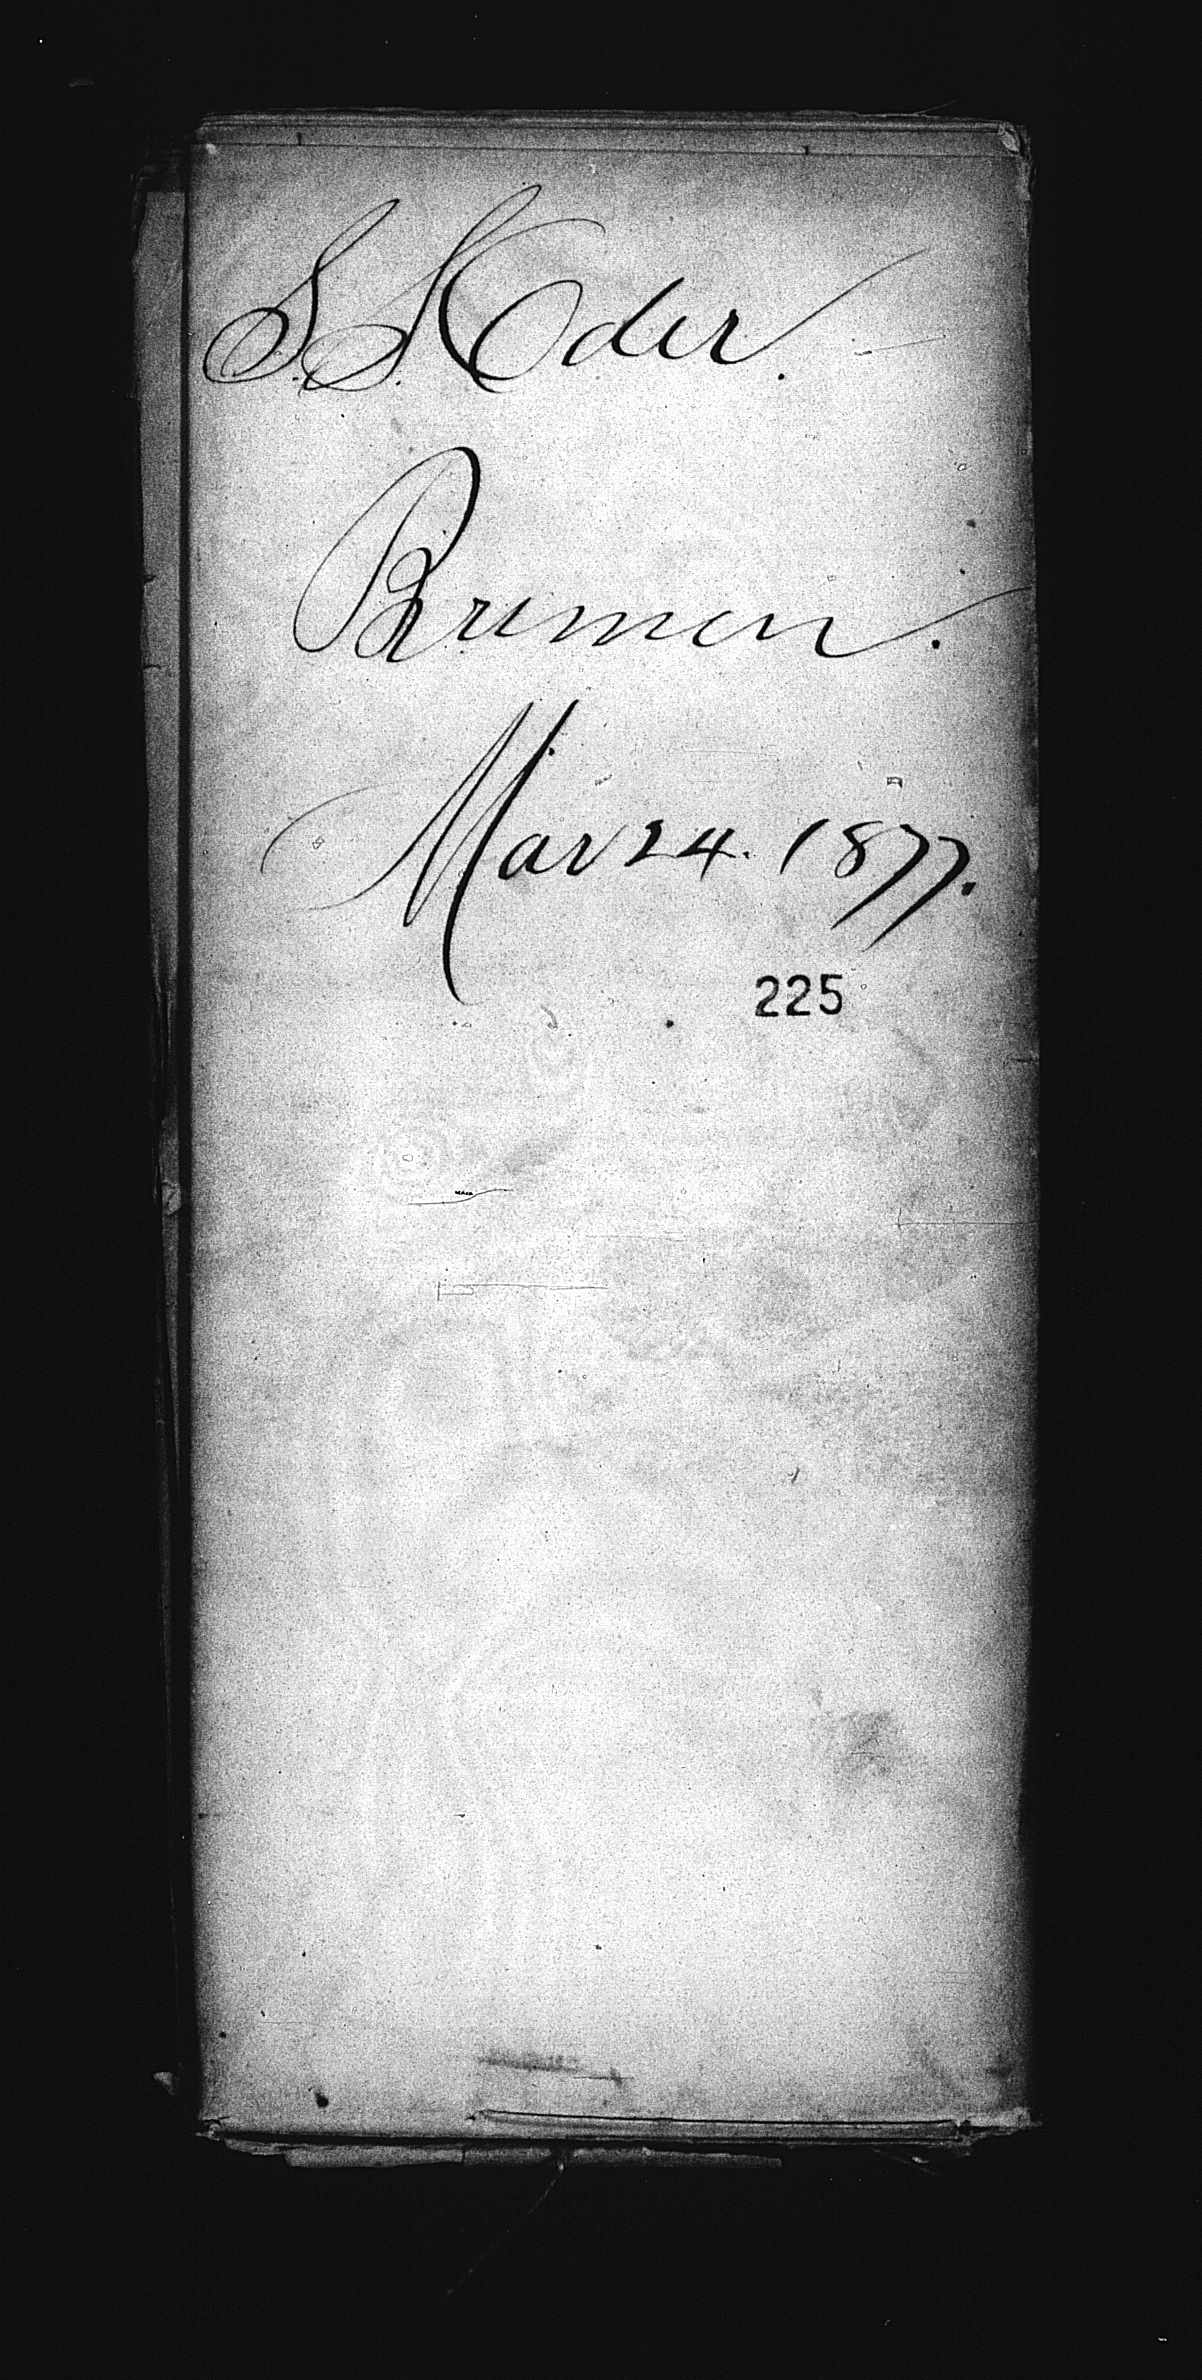 S.S. Oder.
Bremen.
Mar 24. 1877.
225